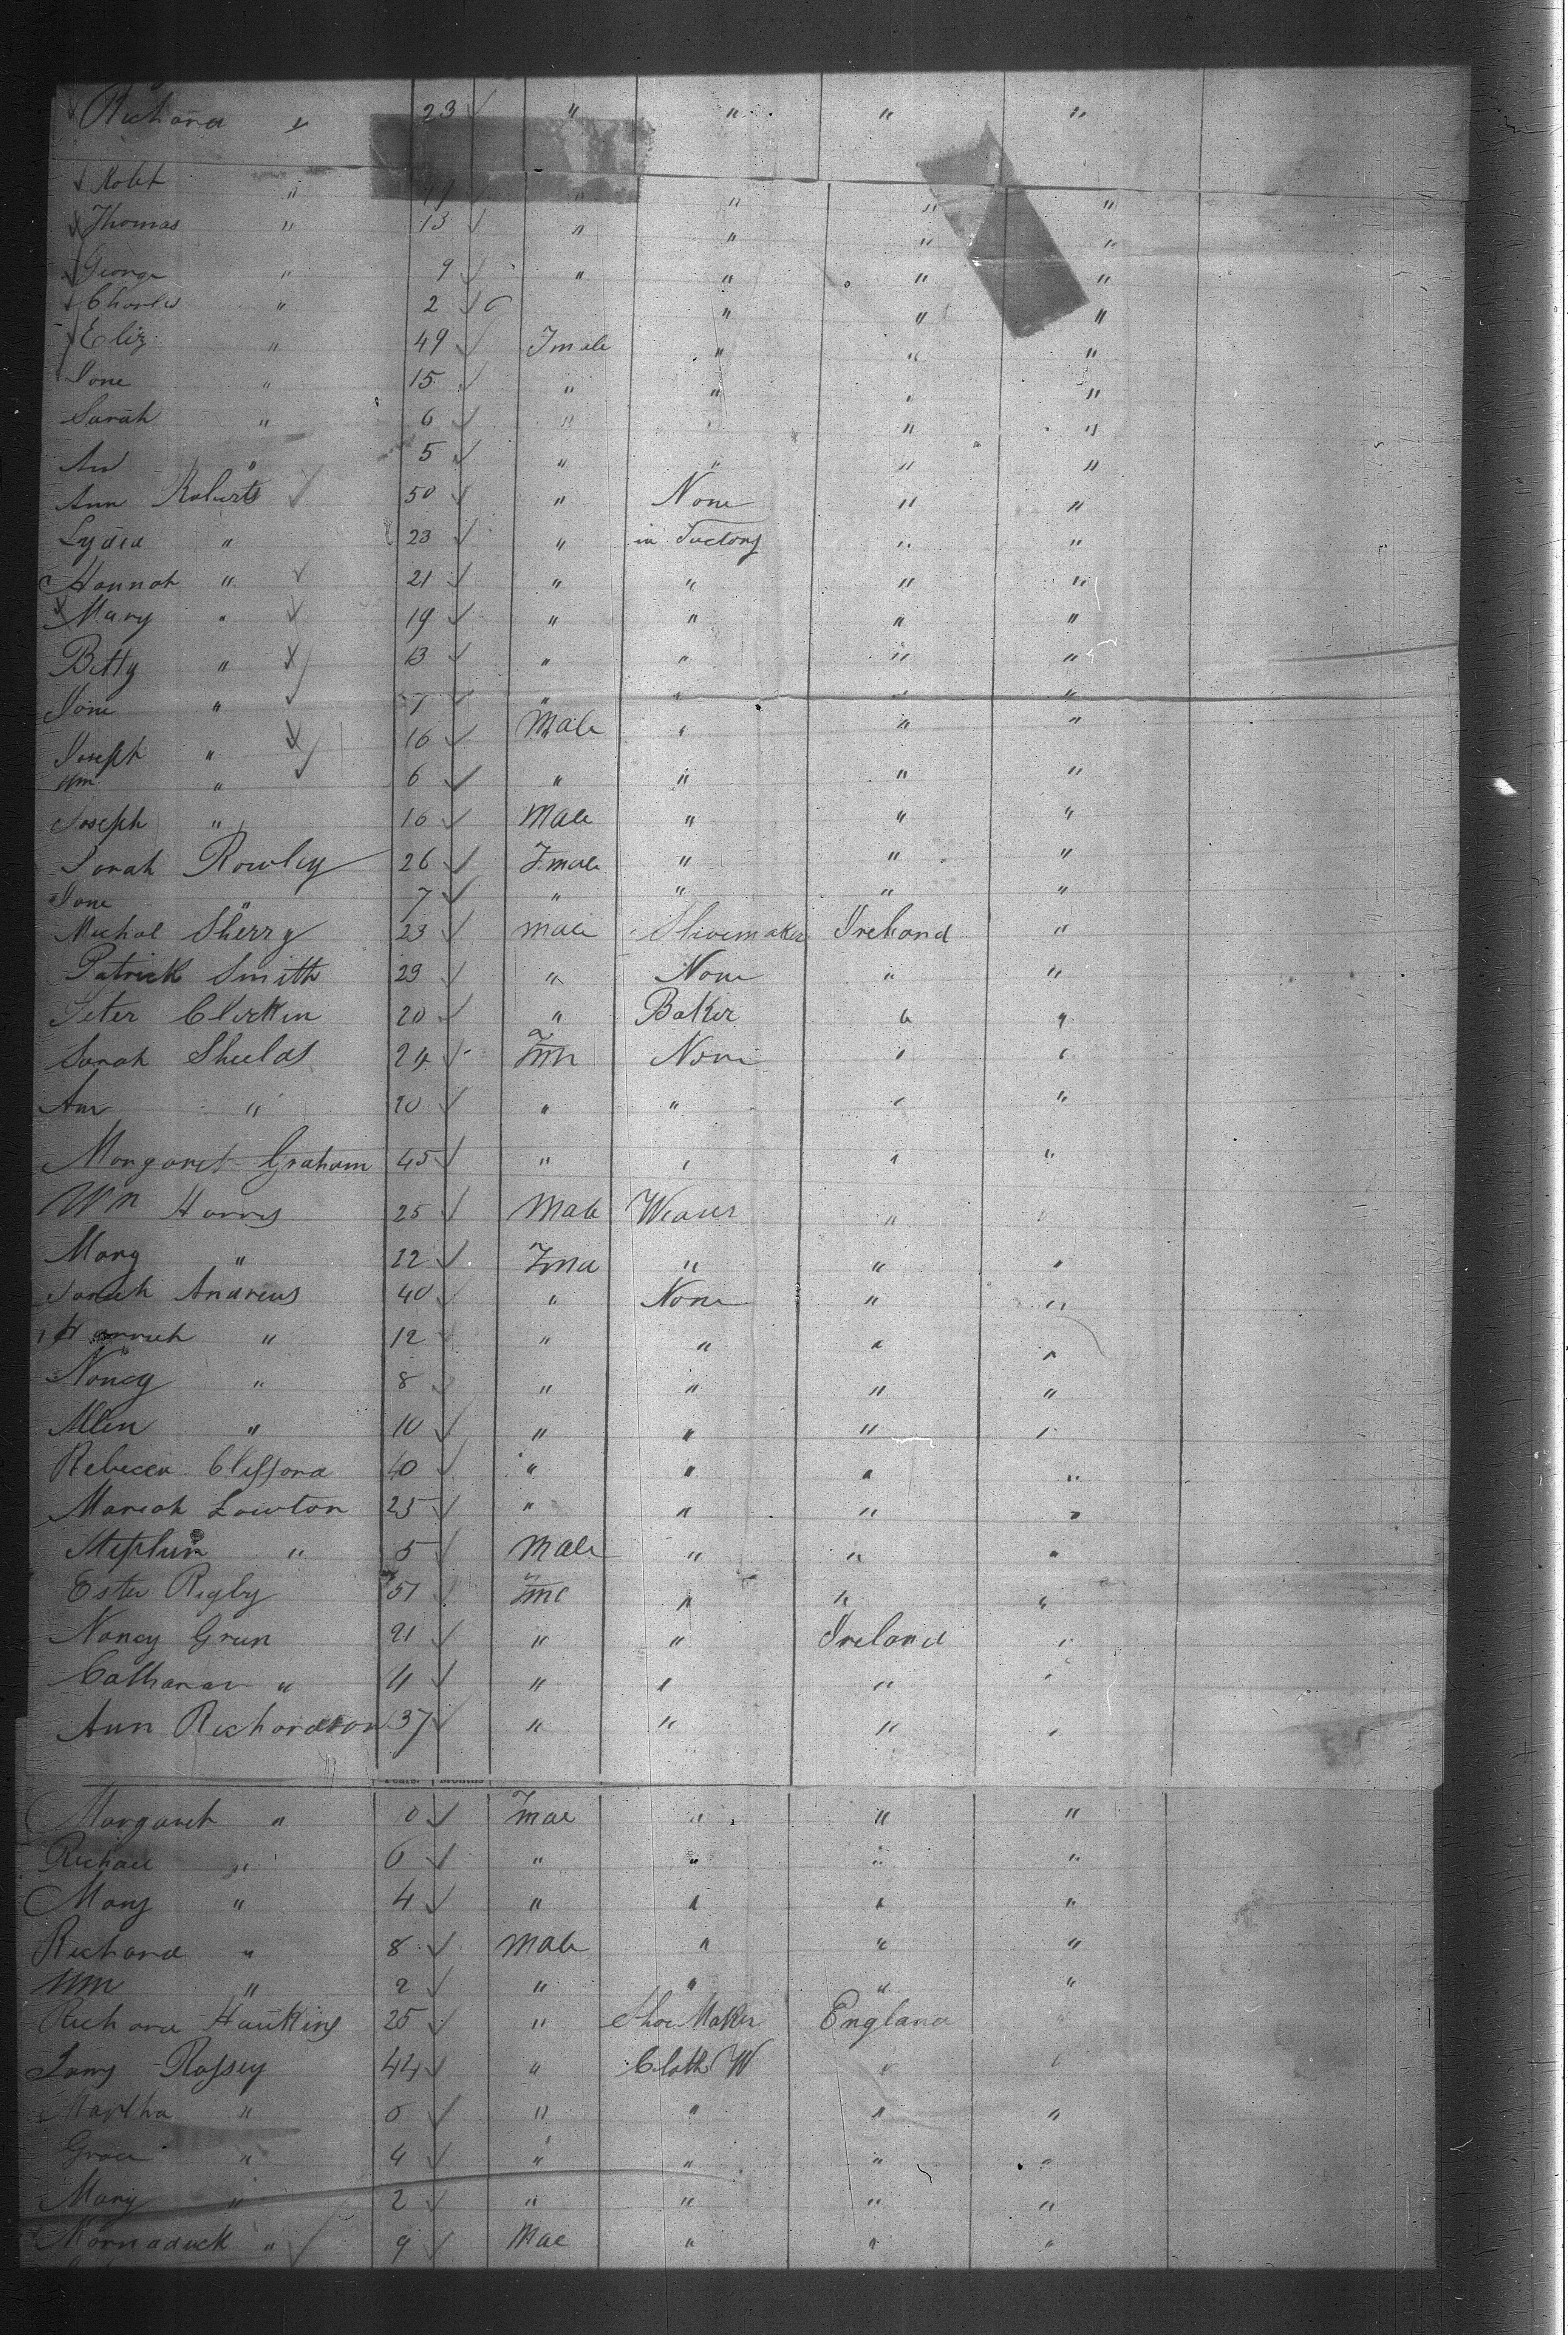 Richard " 23 " " " "
Robt " 11 " " " "
Thomas " 13 " " " "
George " 9 " " " "
Charles " 2 " " "
Eliz " 49 Fmale " " "
Jane " 15 " " " "
Sarah " 6 " " "
Ann " 5 " " " "
Ann Roberts 50 " None " "
Lydia " 23 " in Factory " "
Hannah " 21 " " " "
Mary " 19 " " " "
Betty " 13 " " " "
Jane " 7 " " " "
Joseph " 16 Male " " "
Wm " 6 " " " "
Joseph " 16 Male " " "
Sarah Rowley 26 Fmale " " "
Jane " 7 " " " "
Michal Sherry 23 male Shoemaker Ireland "
Patrick Smith 23 " None " "
Peter Clerkin 20 " Baker " "
Sarah Shields 24 Fm None " "
Ann " 20 " " " "
Margaret Graham 45 " " " "
Wm Harris 25 Male Weaver " "
Mary " 22 Fma " " "
Sarah Andrews 40 " None " "
Hannah " 12 " " " "
Nancy " 8 " " " "
Allen " 10 " " " "
Rebecca Clifford 40 " " " "
Mariah Lawton 25 " " " "
Stephen " 5 Male " " "
Ester Rigby 51 Fme " " "
Nancy Green 21 " " Ireland "
Catharan " 11 " " " "
Ann Richardson 37 " " " "
Years. Months
Margaret " 0 Fmae " " "
Richael " 6 " " " "
Mary " 4 " " " "
Richard " 8 Male " " "
Wm " 2 " " " "
Richard Hawkins 25 " Shoe Maker England "
Jams Rassey 44 " Cloth W " "
Martha " 6 " " " "
Grace " 4 " " " "
Mary " 2 " " " "
Marmaduck " 9 Mae " " "